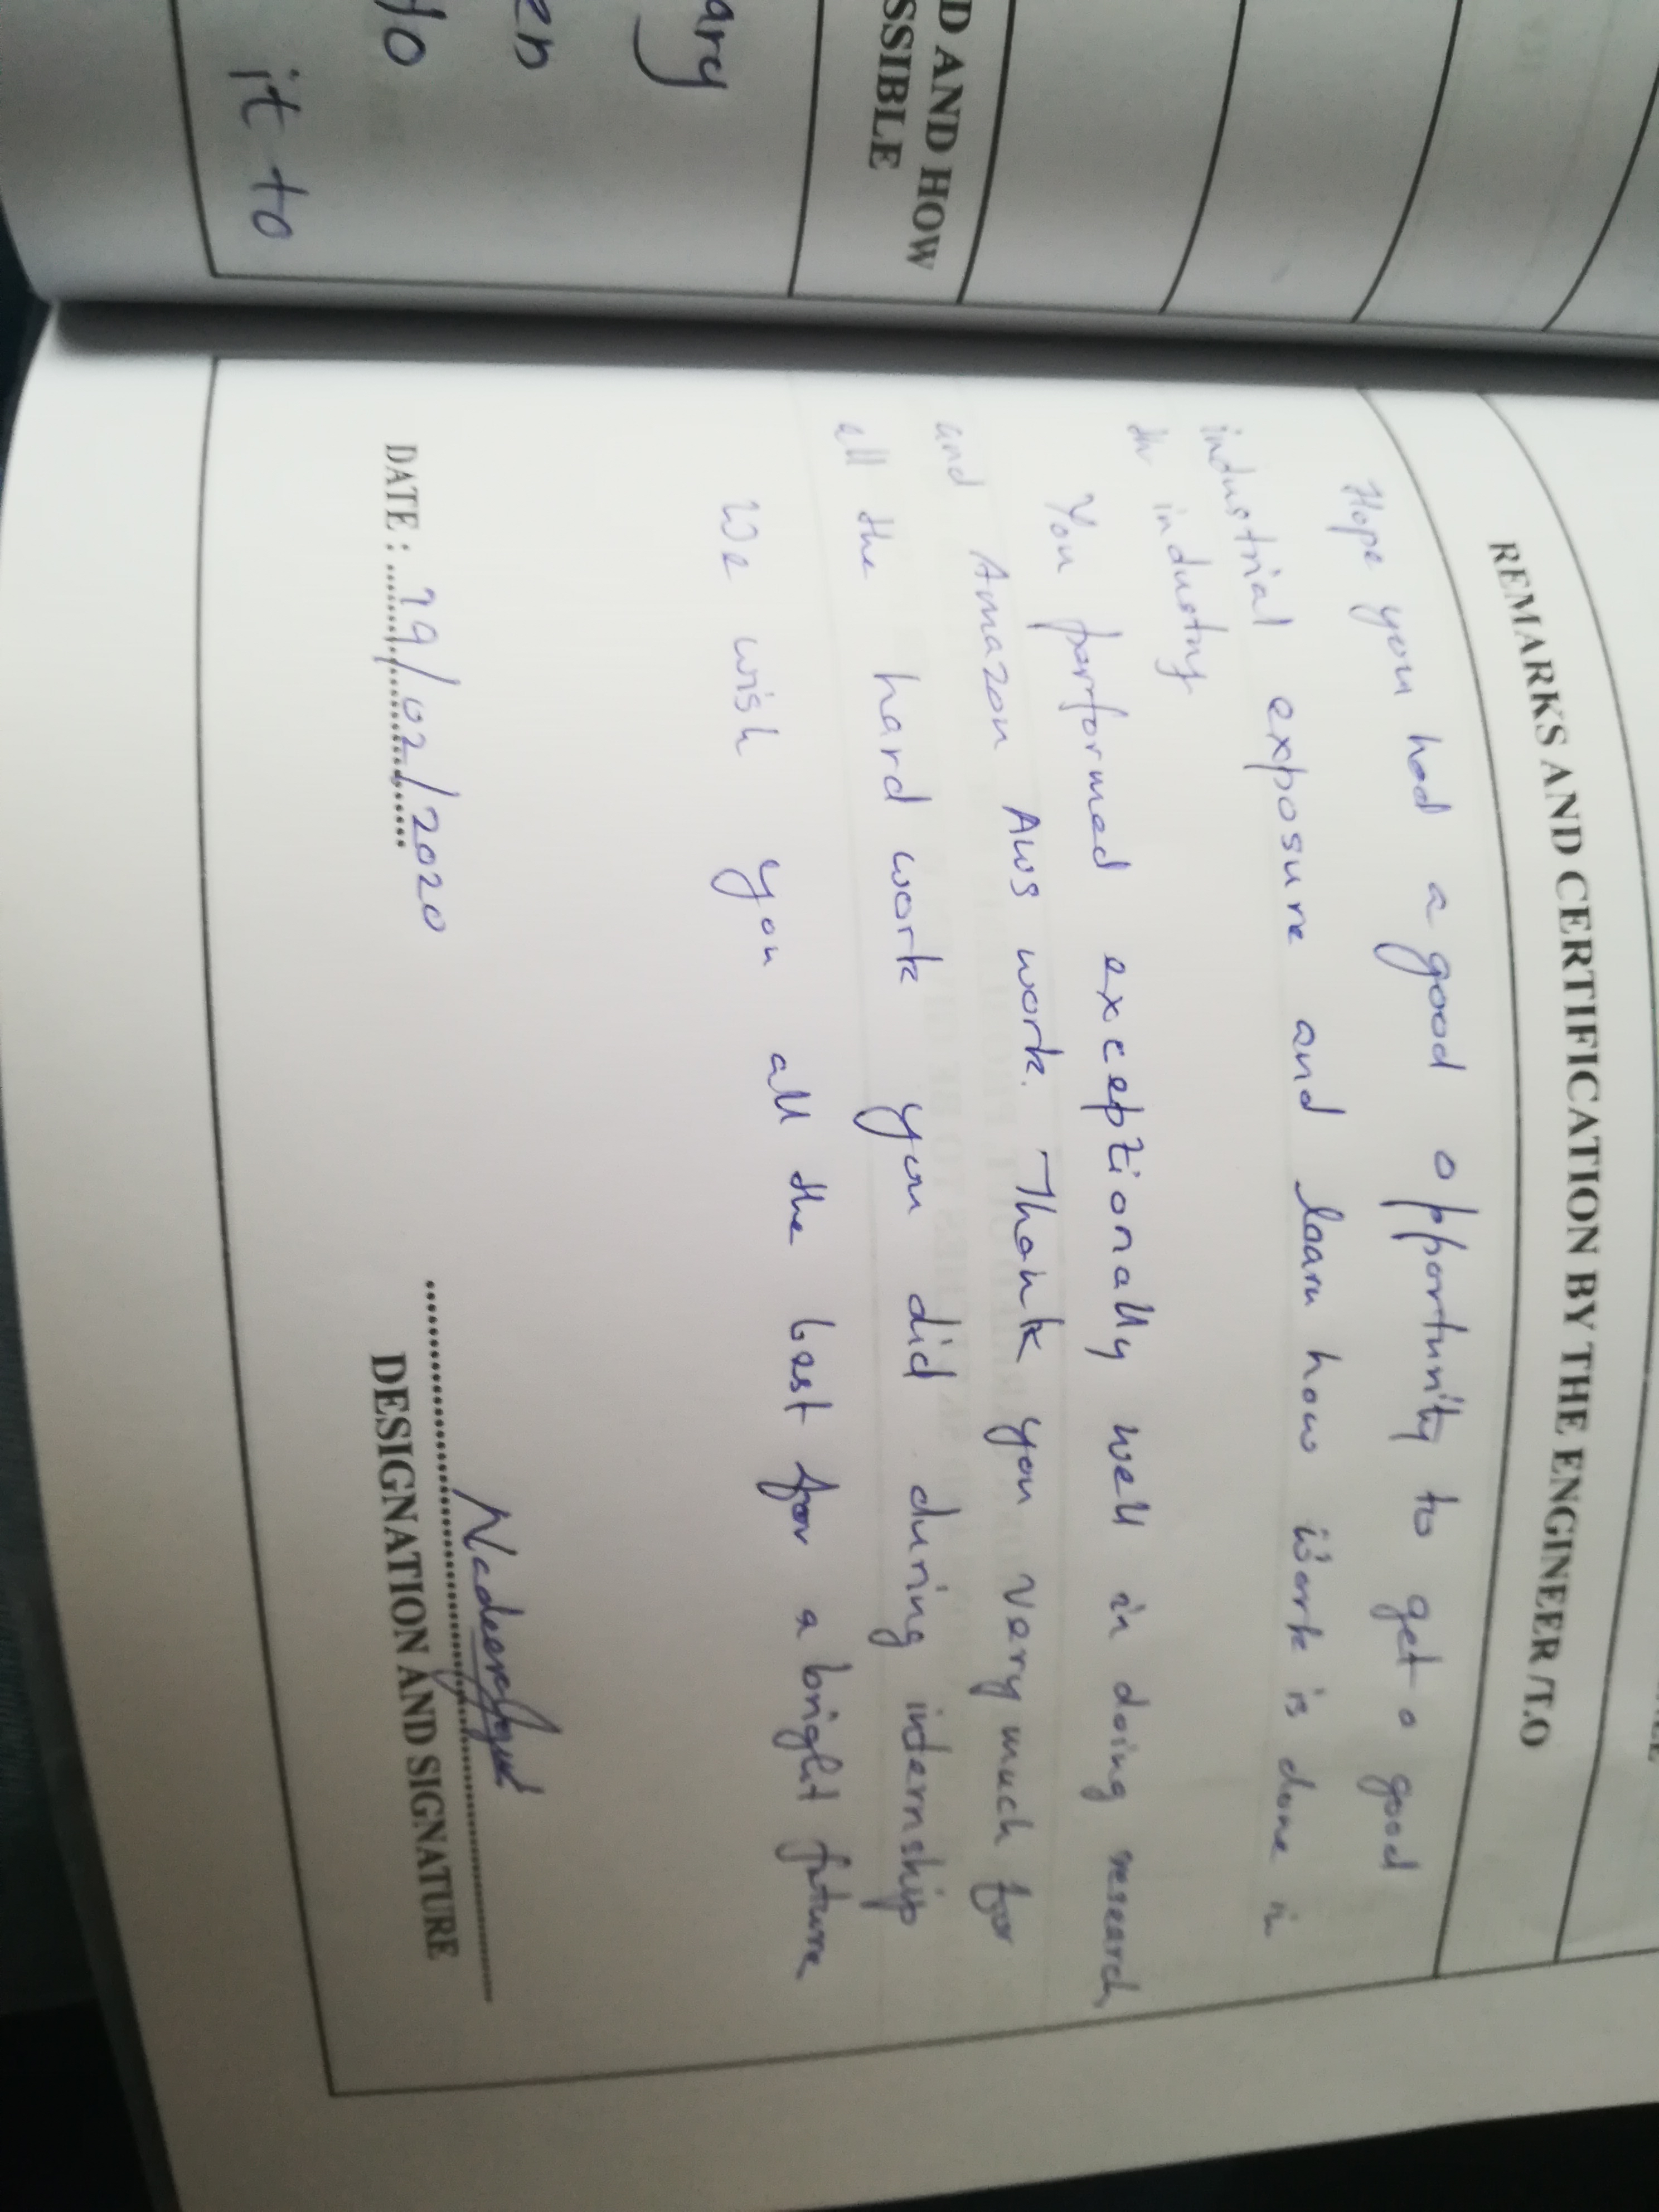 ary
en
do
it to
D AND HOW
SSIBLE
REMARKS AND CERTIFICATION BY THE ENGINEER /T.O
Hope you had a good opportunity to get a good
industrial exposure and learn how work is done in
the industry
You performed exceptionally well in doing research
and Amazon AWS work. Thank you very much for
all the hard work you did during internship
We wish you all the best for a bright future
DATE : 19/02/2020
DESIGNATION AND SIGNATURE